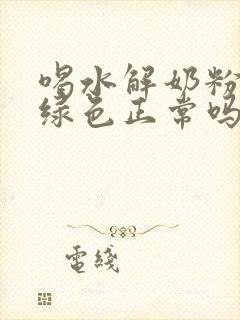 喝水解奶粉
绿色正常吗
電綫